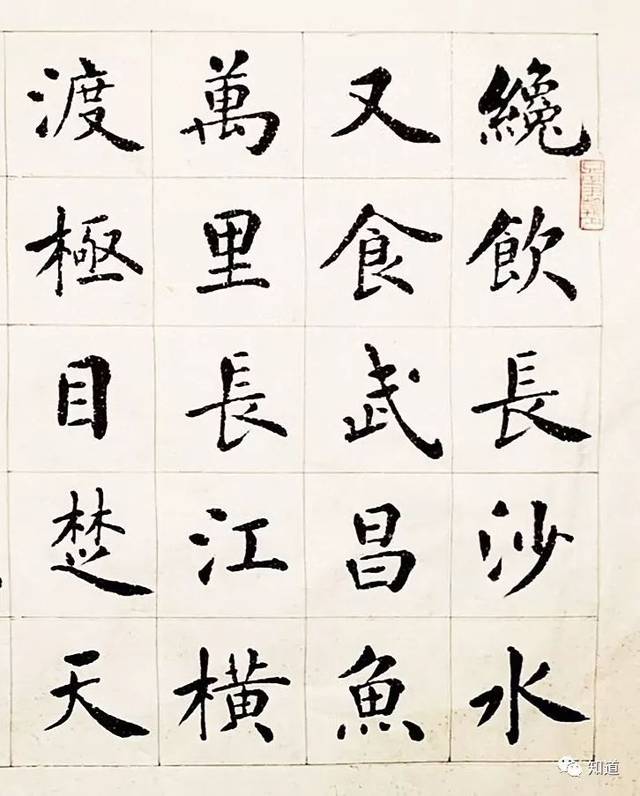 纔飲長沙水
又食武昌魚
萬里長江橫
渡極目楚天
知道